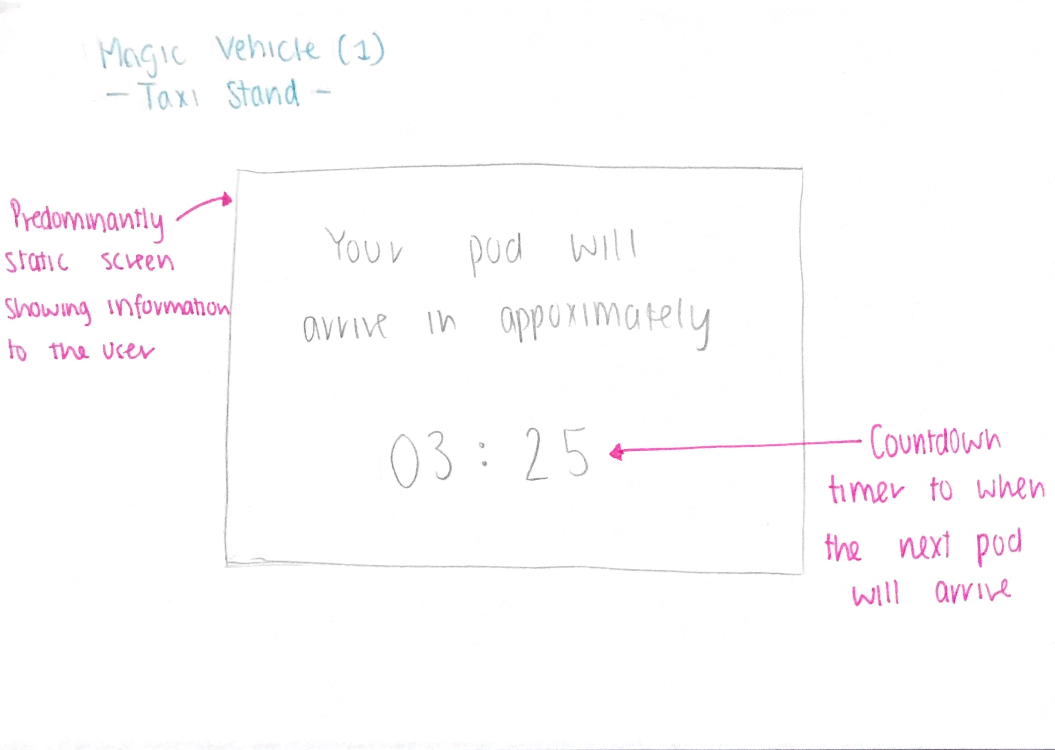 Magic Vehicle (1)
- Taxi Stand -
Predominantly
static screen
showing information
to the user
Your pod will
arrive in appoximately
03 : 25
Countdown
timer to when
the next pod
will arrive